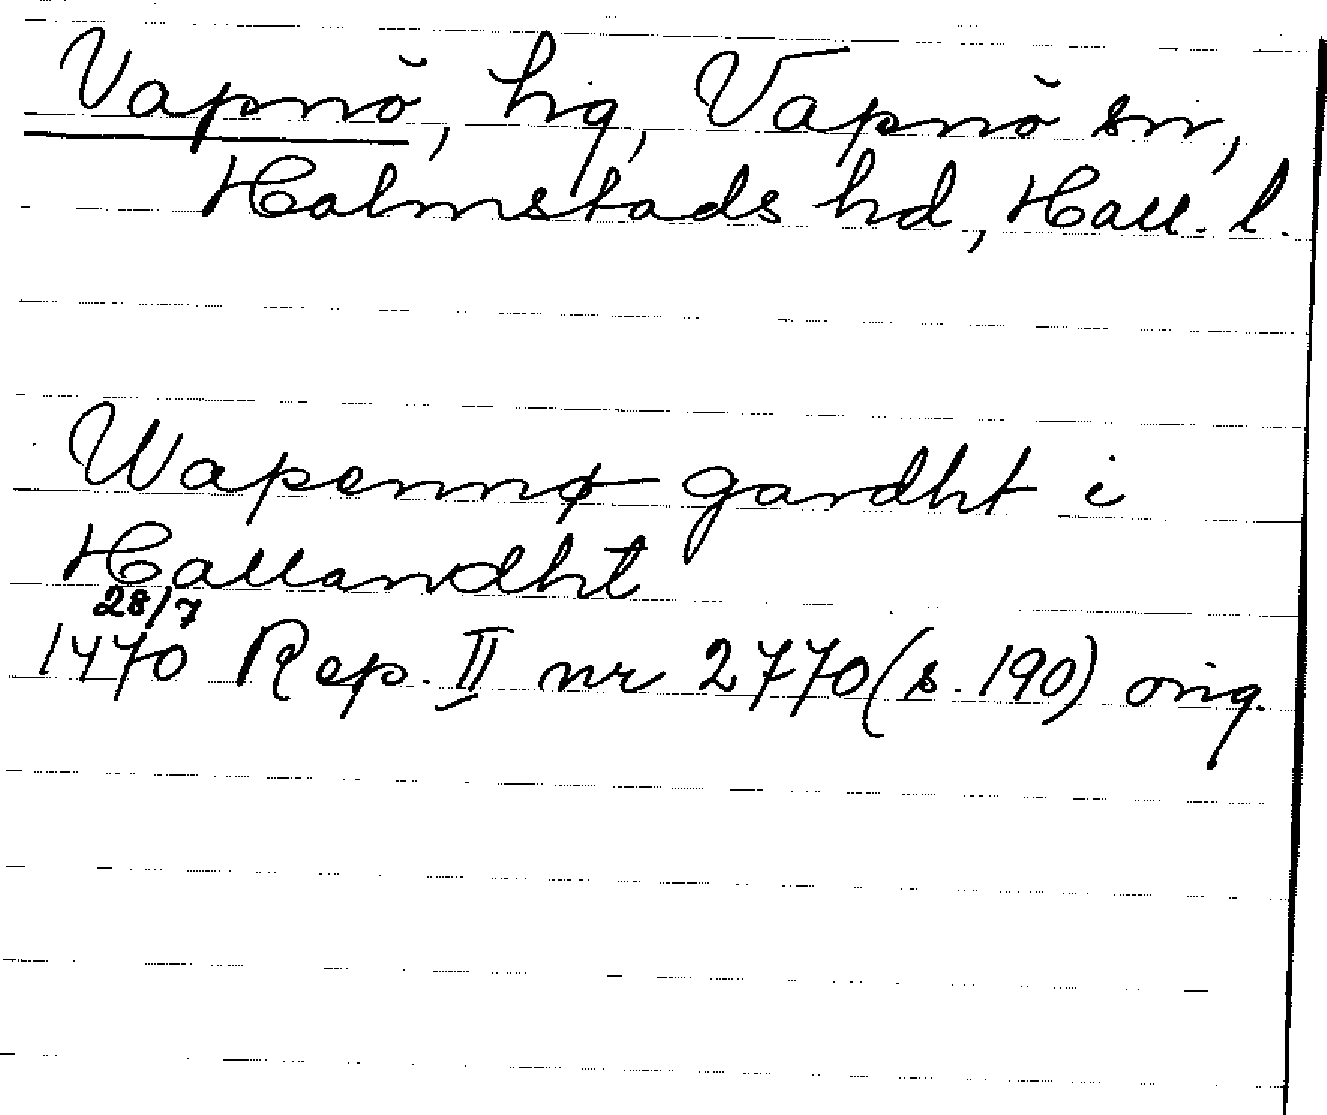 Vapnö, hg, Vapnö sn,
Halmstads hd, Hall. l.
Wapennø gardht i
Hallandht
28/7
1470 Rep. II nr 2770 (s. 190) orig.